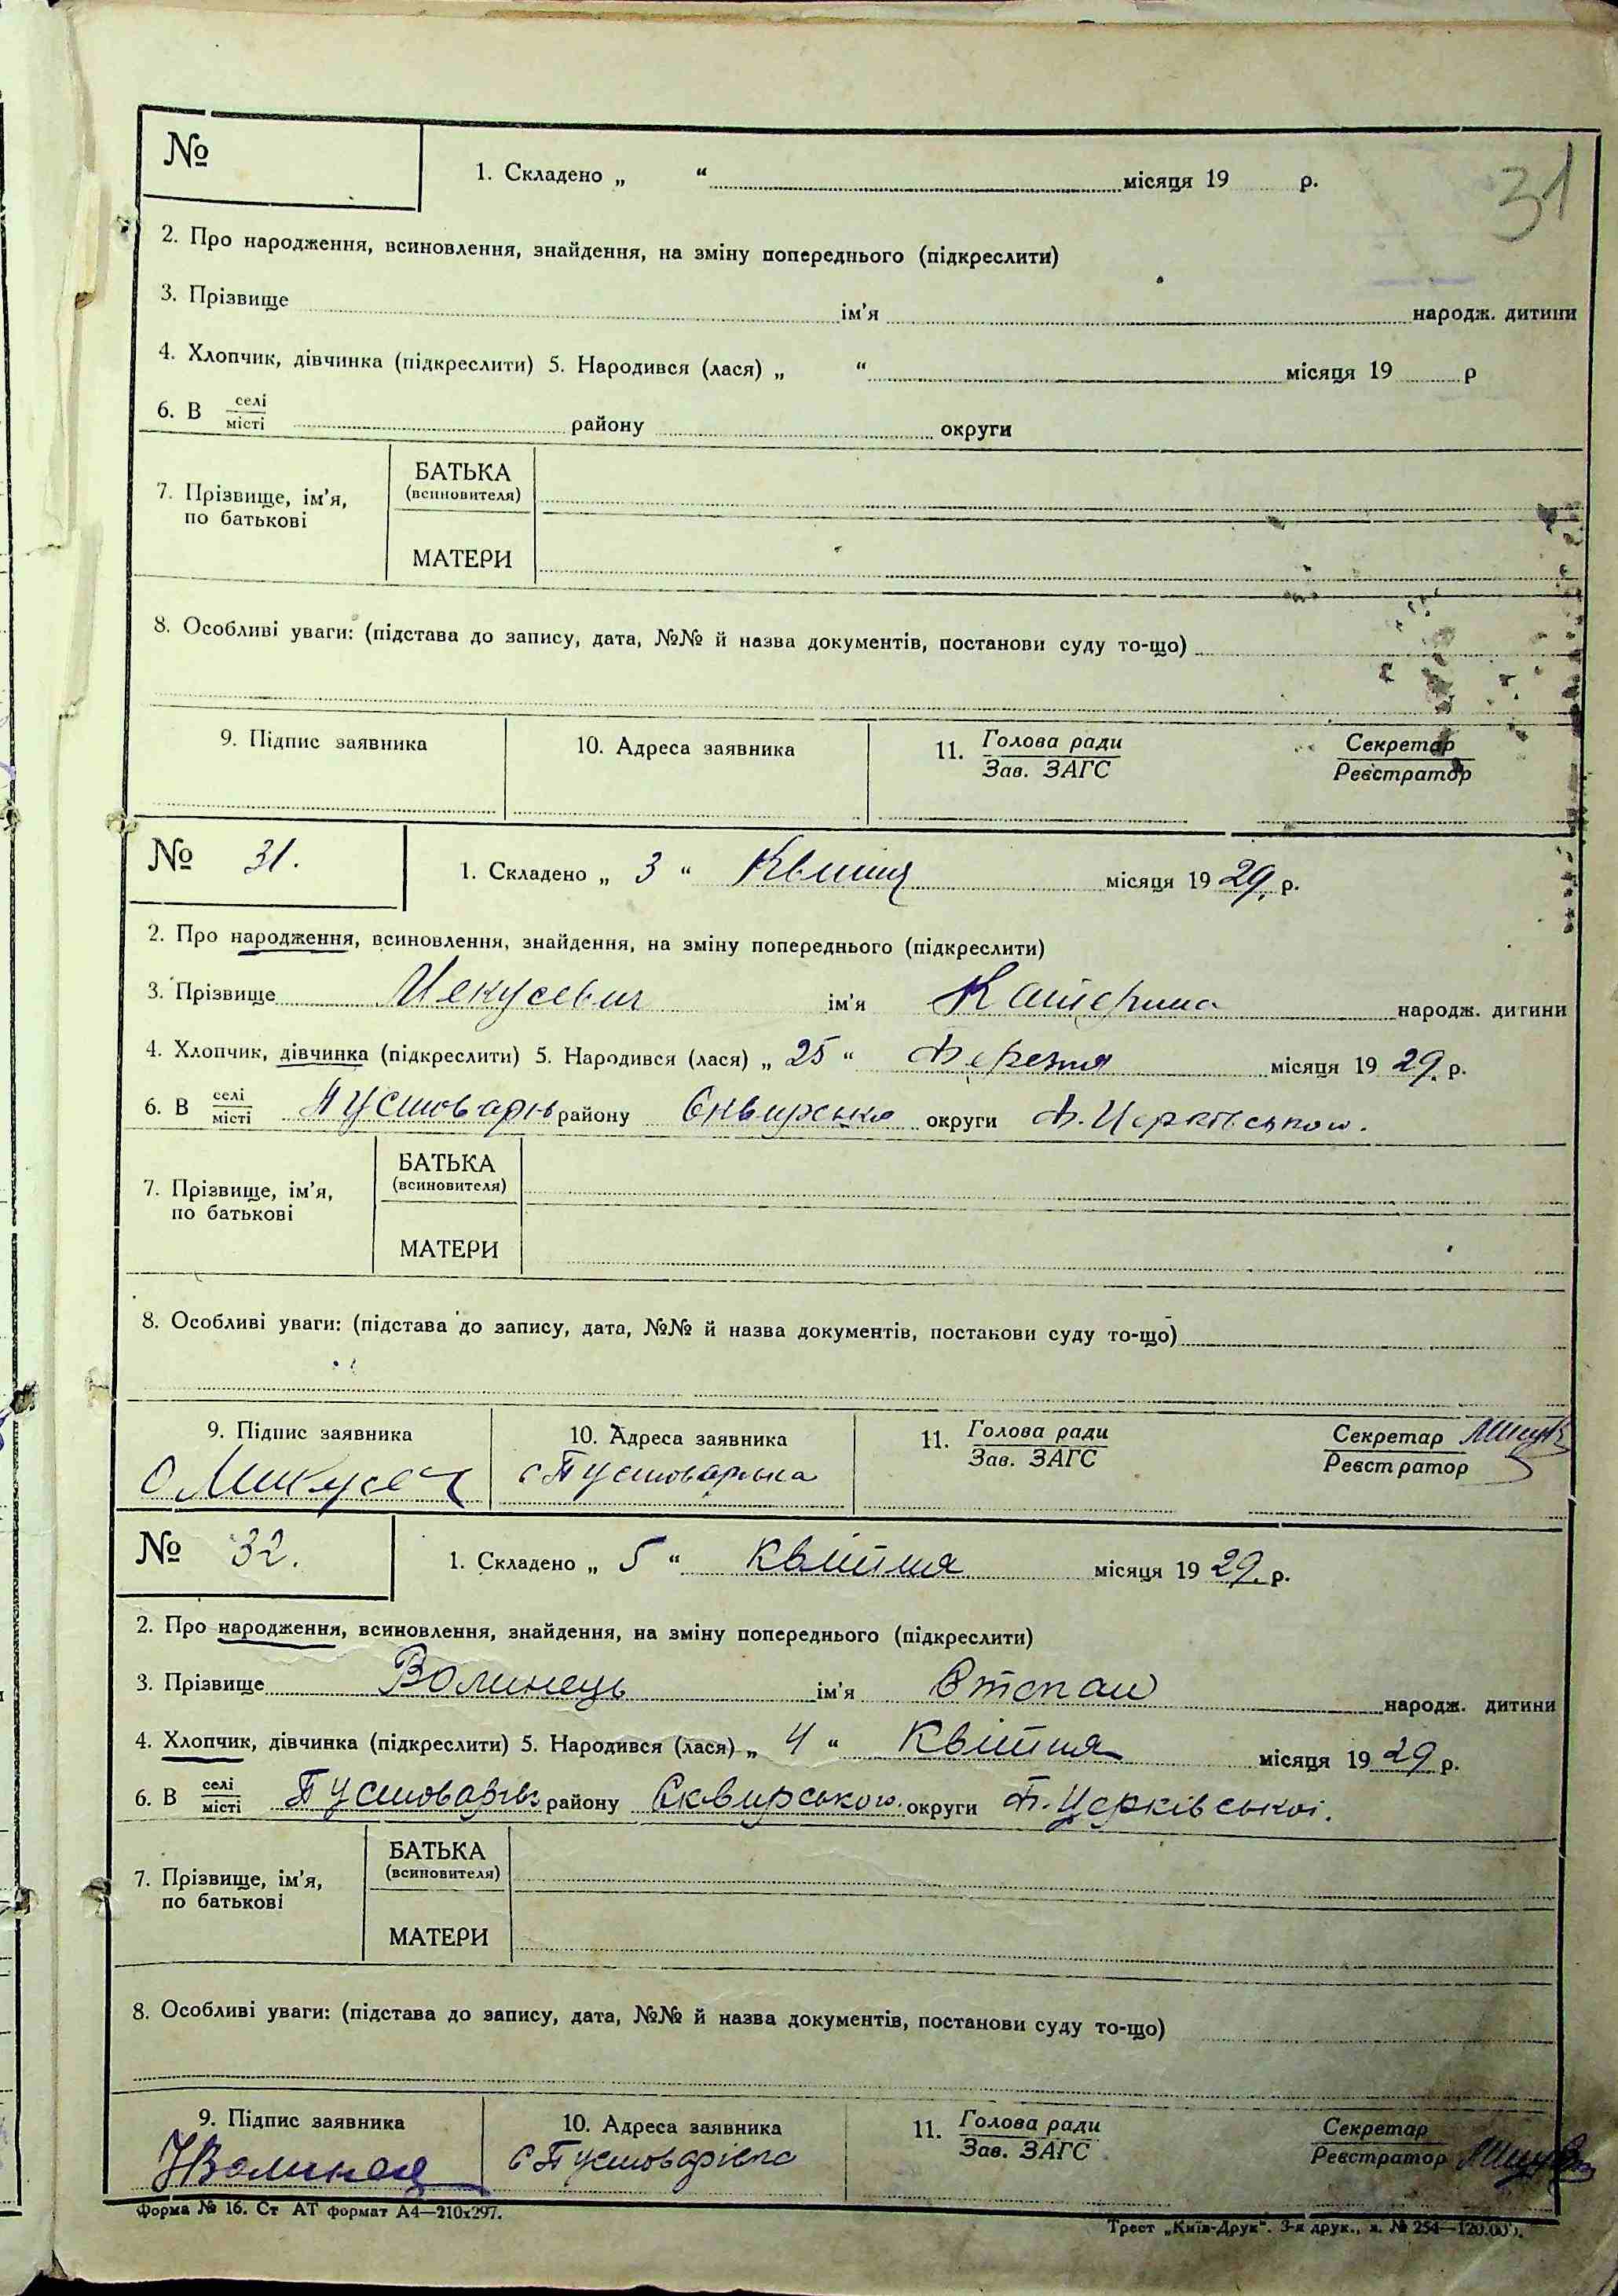 31
№
1. Складено „ “ місяця 19 р.
2. Про народження, всиновлення, знайдення, на зміну попереднього (підкреслити)
3. Прізвище ім’я народж. дитини
4. Хлопчик, дівчинка (підкреслити) 5. Народився (лася) „ “ місяця 19 р
6. В селі місті району округи
7. Прізвище, ім’я, по батькові
БАТЬКА (всиновителя)
МАТЕРИ
8. Особливі уваги: (підстава до запису, дата, №№ й назва документів, постанови суду то-що)
9. Підпис заявника 10. Адреса заявника 11. Голова ради Зав. ЗАГС Секретар Реєстратор
№ 31.
1. Складено „ 3 “ Квітня місяця 19 29. р.
2. Про народження, всиновлення, знайдення, на зміну попереднього (підкреслити)
3. Прізвище ім’я Катерина народж. дитини
4. Хлопчик, дівчинка (підкреслити) 5. Народився (лася) „ 25 “ Березня місяця 19 29. р.
6. В селі місті району округи
7. Прізвище, ім’я, по батькові
БАТЬКА (всиновителя)
МАТЕРИ
8. Особливі уваги: (підстава до запису, дата, №№ й назва документів, постанови суду то-що)
9. Підпис заявника 10. Адреса заявника 11. Голова ради Зав. ЗАГС Секретар Реєстратор
№ 32.
1. Складено „ 5 “ квітня місяця 19 29. р.
2. Про народження, всиновлення, знайдення, на зміну попереднього (підкреслити)
3. Прізвище Волинець ім’я Степан народж. дитини
4. Хлопчик, дівчинка (підкреслити) 5. Народився (лася) „ 4 “ Квітня місяця 19 29 р.
6. В селі місті району Сквирського округи Б. Церківської.
7. Прізвище, ім’я, по батькові
БАТЬКА (всиновителя)
МАТЕРИ
8. Особливі уваги: (підстава до запису, дата, №№ й назва документів, постанови суду то-що)
9. Підпис заявника 10. Адреса заявника 11. Голова ради Зав. ЗАГС Секретар Реєстратор
с Пустоварівка
Форма № 16. Ст АТ формат А4—210х297.
Трест „Київ-Друк“. 3-я друк., з. № 254—120.000.